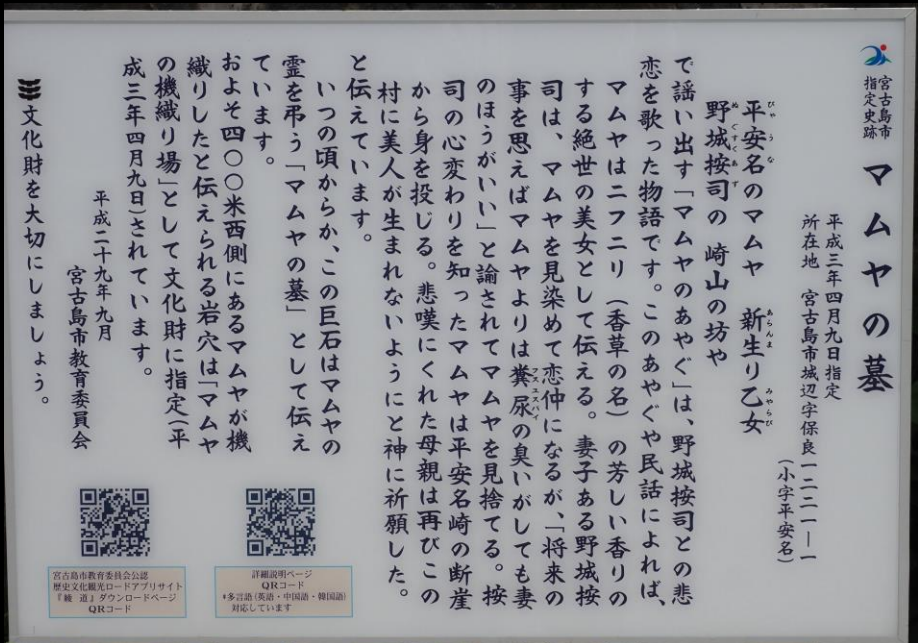 宮古島市
指定史跡
マムヤの墓
平成三年四月九日指定
所在地 宮古島市城辺字保良一二二一―一
(小字平安名)
平安名のマムヤ 新生り乙女
野城按司の 崎山の坊や
で謡い出す「マムヤのあやぐ」は、野城按司との悲
恋を歌った物語です。このあやぐや民話によれば、
マムヤはニフニリ(香草の名)の芳しい香りの
する絶世の美女として伝える。妻子ある野城按
司は、マムヤを見染めて恋仲になるが、「将来の
事を思えばマムヤよりは糞尿の臭いがしても妻
のほうがいい」と諭されてマムヤを見捨てる。按
司の心変わりを知ったマムヤは平安名崎の断崖
から身を投じる。悲嘆にくれた母親は再びこの
村に美人が生まれないようにと神に祈願した。
と伝えています。
いつの頃からか、この巨石はマムヤの
霊を弔う「マムヤの墓」として伝え
ています。
およそ四〇〇米西側にあるマムヤが機
織りしたと伝えられる岩穴は「マムヤ
の機織り場」として文化財に指定(平
成三年四月九日)されています。
平成二十九年九月
宮古島市教育委員会
文化財を大切にしましょう。
詳細説明ページ
QRコード
*多言語(英語・中国語・韓国語)
対応しています
宮古島市教育委員会公認
歴史文化観光ロードアプリサイト
『綾道』ダウンロードページ
QRコード